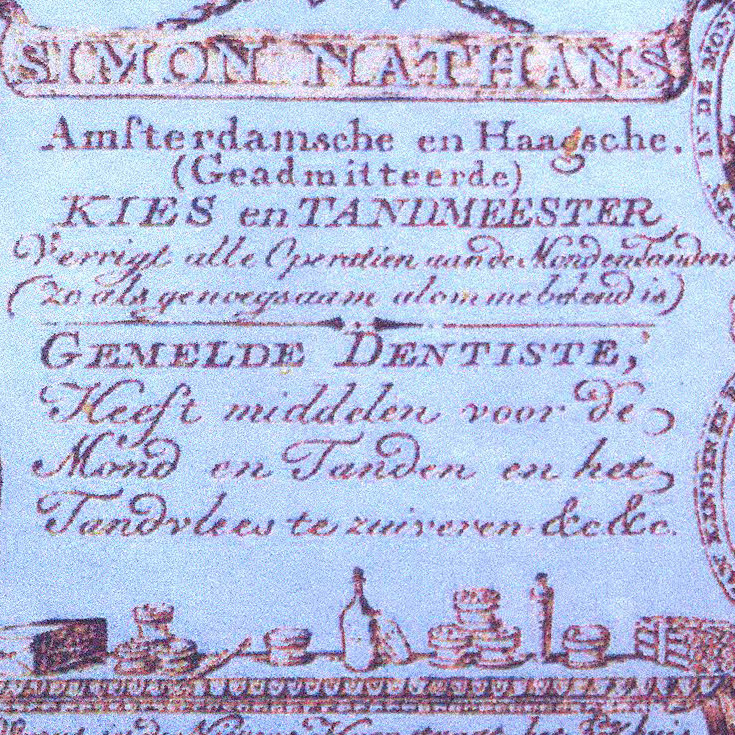 SIMON NATHANS
Amſterdamsche en Haagsche.
(Geadmitteerde)
KIES en TANDMEESTER
Verrigt alle Operatien aan de Mond en Tanden
(zo als genoegsaam alomme bekend is)
GEMELDE DENTISTE,
Heeft middelen voor de
Mond en Tanden en het
Tandvlees te zuiveren &c&c.
IN DE MON
KINDER